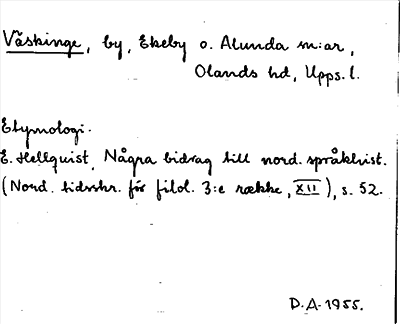 Väskinge, by, Ekeby o. Alunda sn:ar,
Olands hd, Upps. l.
Etymologi.
E. Hellquist, Några bidrag till nord. språkhist.
(Nord. tidsskr. for filol. 3:e række, XII), s. 52.
D.A. 1955.